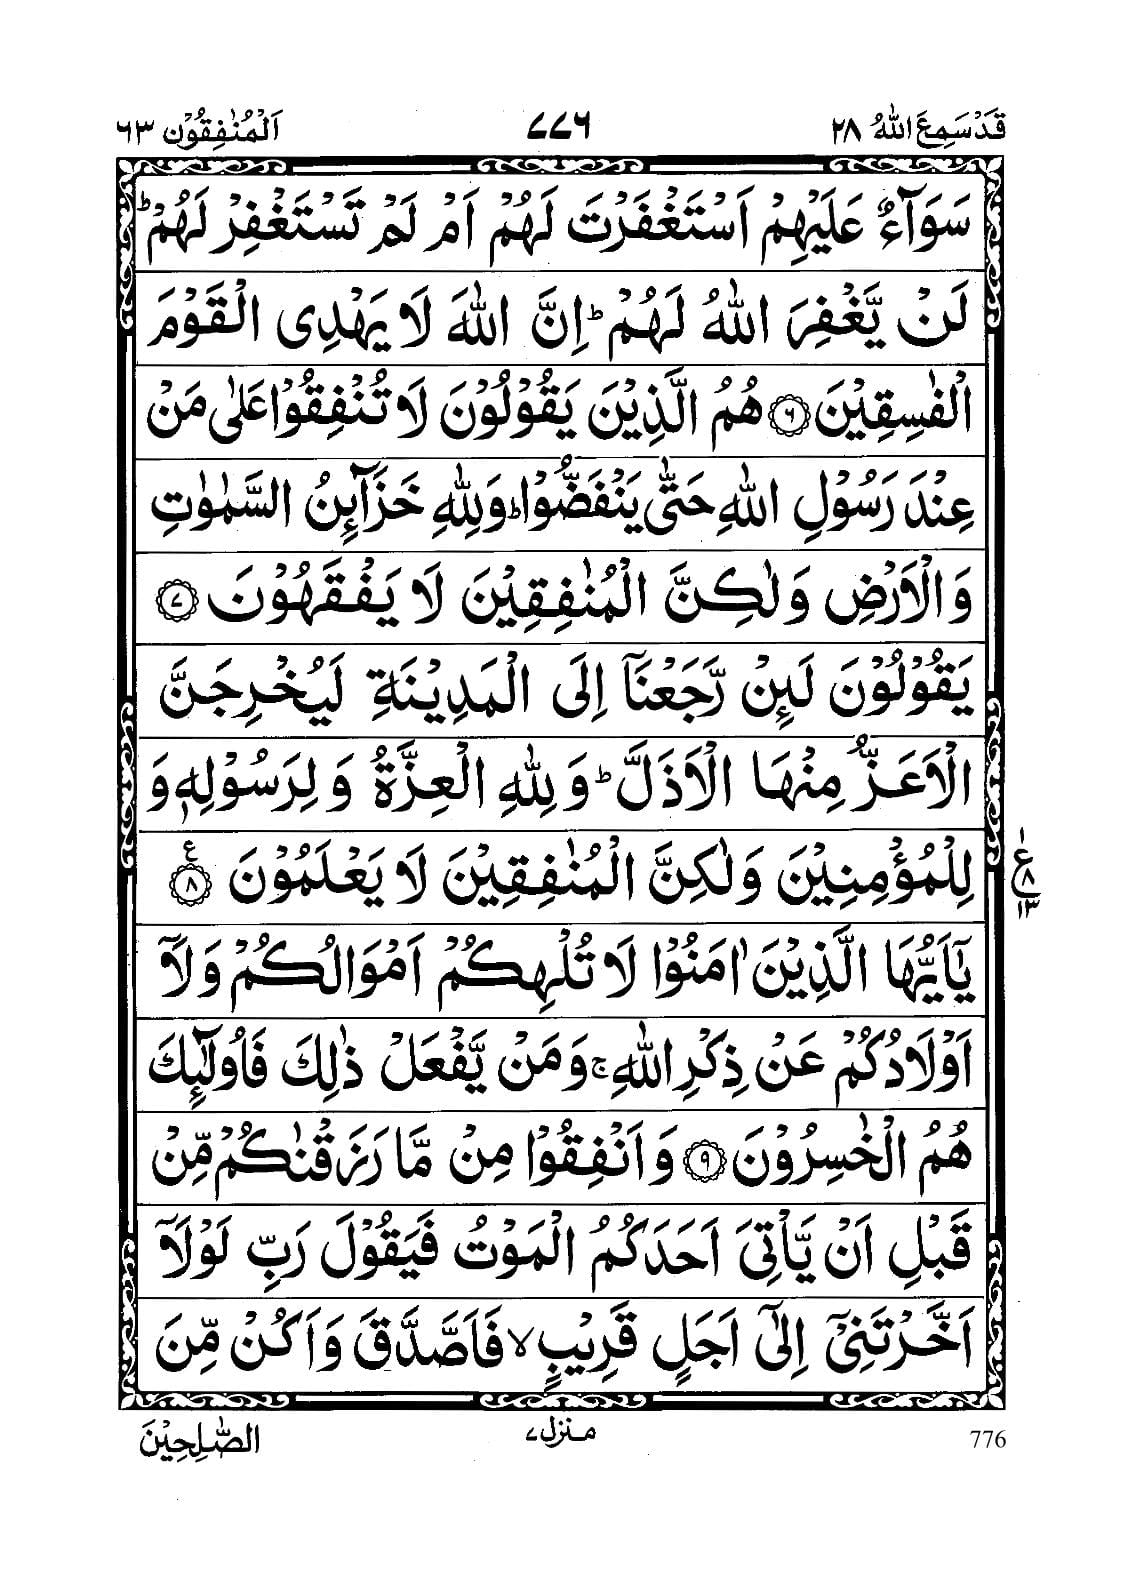 قَدْ سَمِعَ اللّٰهُ ٢٨ ٧٧٦ اَلْمُنٰفِقُوْن ٦٣
سَوَآءٌ عَلَيْهِمْ اَسْتَغْفَرْتَ لَهُمْ اَمْ لَمْ تَسْتَغْفِرْ لَهُمْ ؕ
لَنْ يَّغْفِرَ اللّٰهُ لَهُمْ ؕ اِنَّ اللّٰهَ لَا يَهْدِى الْقَوْمَ
الْفٰسِقِيْنَ ٦ هُمُ الَّذِيْنَ يَقُوْلُوْنَ لَا تُنْفِقُوْا عَلٰى مَنْ
عِنْدَ رَسُوْلِ اللّٰهِ حَتّٰى يَنْفَضُّوْا ؕ وَلِلّٰهِ خَزَآئِنُ السَّمٰوٰتِ
وَالْاَرْضِ وَلٰكِنَّ الْمُنٰفِقِيْنَ لَا يَفْقَهُوْنَ ٧
يَقُوْلُوْنَ لَئِنْ رَّجَعْنَاۤ اِلَى الْمَدِيْنَةِ لَيُخْرِجَنَّ
الْاَعَزُّ مِنْهَا الْاَذَلَّ ؕ وَلِلّٰهِ الْعِزَّةُ وَلِرَسُوْلِهٖ وَ
لِلْمُؤْمِنِيْنَ وَلٰكِنَّ الْمُنٰفِقِيْنَ لَا يَعْلَمُوْنَ ٨ ع
١ ع ٨ ١٣
يٰۤاَيُّهَا الَّذِيْنَ اٰمَنُوْا لَا تُلْهِكُمْ اَمْوَالُكُمْ وَلَاۤ
اَوْلَادُكُمْ عَنْ ذِكْرِ اللّٰهِ ۚ وَمَنْ يَّفْعَلْ ذٰلِكَ فَاُولٰٓئِكَ
هُمُ الْخٰسِرُوْنَ ٩ وَاَنْفِقُوْا مِنْ مَّا رَزَقْنٰكُمْ مِّنْ
قَبْلِ اَنْ يَّاْتِىَ اَحَدَكُمُ الْمَوْتُ فَيَقُوْلَ رَبِّ لَوْلَاۤ
اَخَّرْتَنِىْۤ اِلٰٓى اَجَلٍ قَرِيْبٍ ۙ فَاَصَّدَّقَ وَاَكُنْ مِّنَ
776 منزل ٧ الصّٰلِحِيْنَ